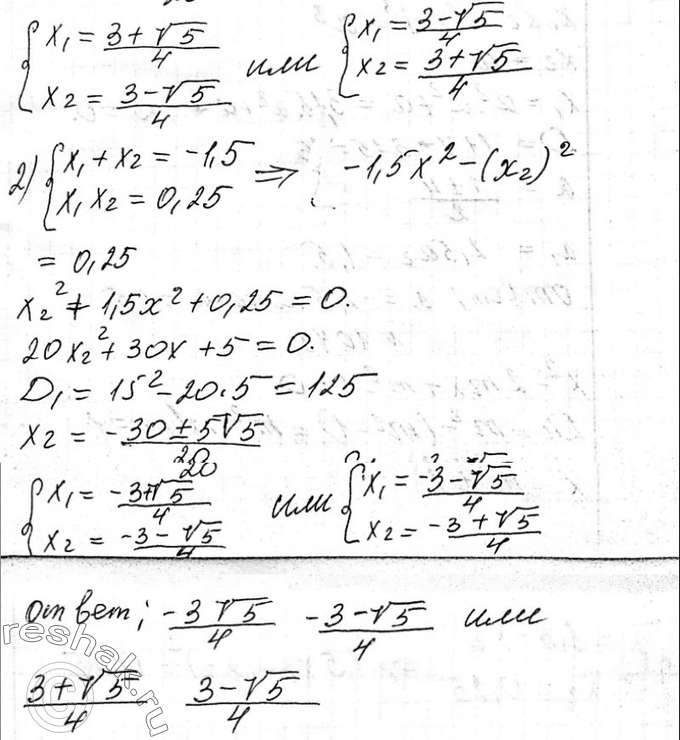 { x₁ = (3+√5)/4 или { x₁ = (3-√5)/4
x₂ = (3-√5)/4 x₂ = (3+√5)/4
2) { x₁ + x₂ = -1,5 => -1,5x² - (x₂)²
x₁ x₂ = 0,25
= 0,25
x₂² + 1,5x² + 0,25 = 0.
20x₂² + 30x + 5 = 0.
D₁ = 15² - 20·5 = 125
x₂ = -30±5√5/20
{ x₁ = (-3+√5)/4 или { x₁ = (-3-√5)/4
x₂ = (-3-√5)/4 x₂ = (-3+√5)/4
ответ; (-3√5)/4 (-3-√5)/4 или
(3+√5)/4 (3-√5)/4
reshak.ru